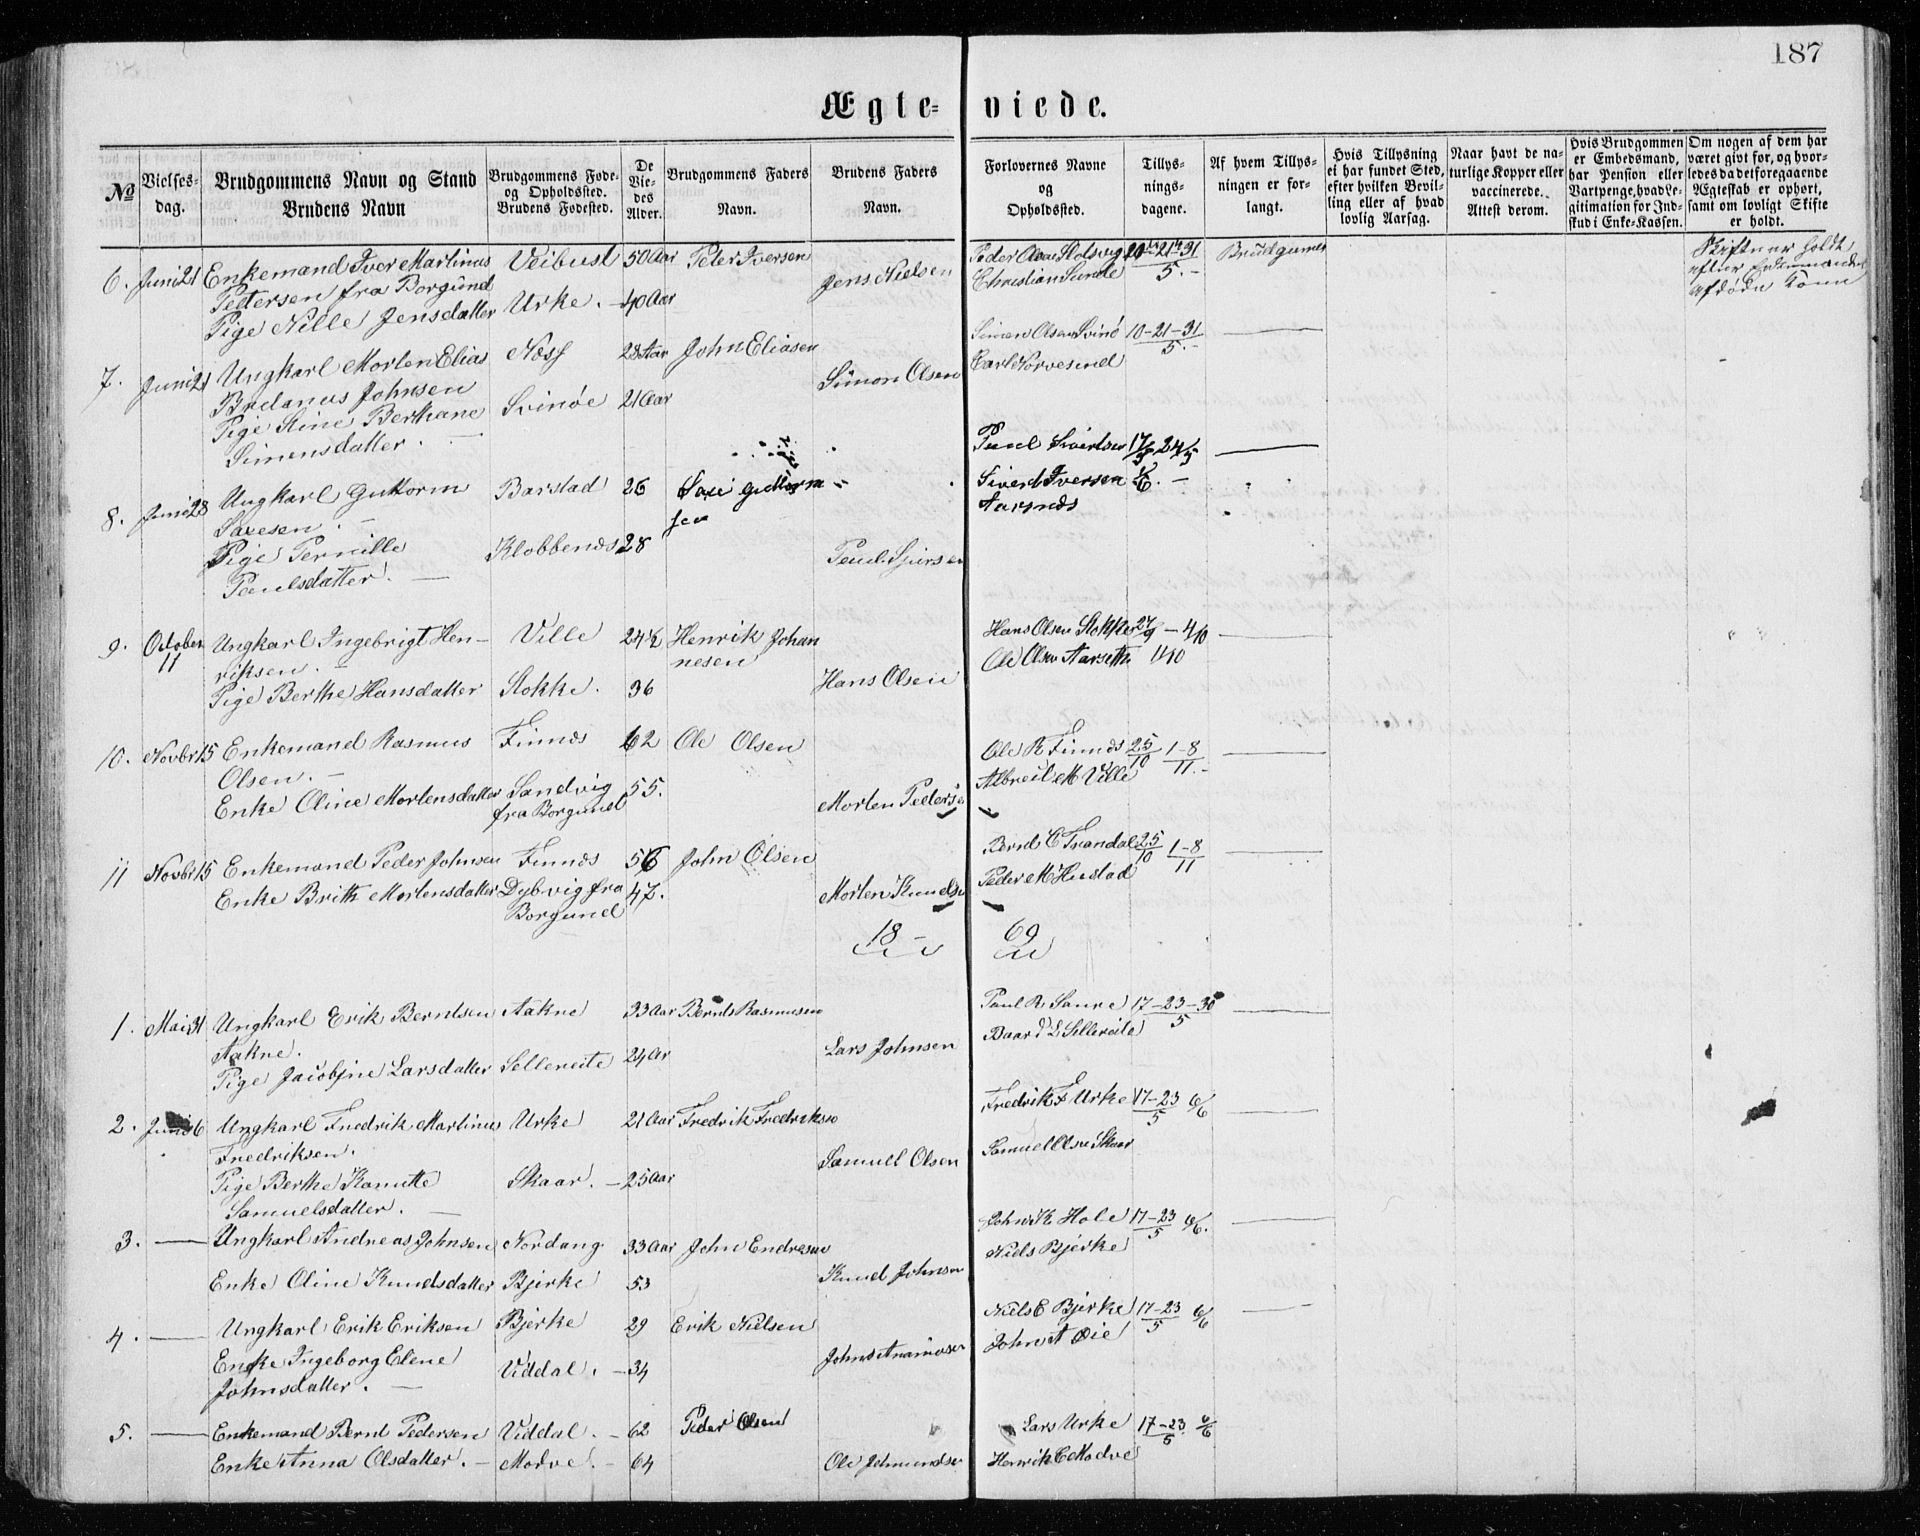 187
Ægte- viede.
№ Vielses-dag. Brudgommens Navn og Stand Brudens Navn Brudgommens Føde- og Opholdssted. Brudens Fødested. De Vie-des Alder. Brudgommens Faders Navn. Brudens Faders Navn. Forlovernes Navne og Opholdssted. Tillys-nings-dagene. Af hvem Tillys-ningen er for-langt. Hvis Tillysning ei har fundet Sted, efter hvilken Bevil-ling eller af hvad lovlig Aarsag. Naar havt de na-turlige Kopper eller vaccinerede. Attest derom. Hvis Brudgommen er Embedsmand, har Pension eller Vartpenge, hvad Le-gitimation for Ind-skud i Enke-Kassen. Om nogen af dem har været gift før, og hvor-ledes da det foregaaende Ægteskab er ophørt, samt om lovligt Skifte er holdt.
6. Juni 21 Enkemand Iver Martinus Veibust 50 Aar Peter Iversen Peder 10-21-31
Petersen fra Borgund Jens Nielsen Christian Sunde 5.- Skifte er holdt
Pige Nille Jensdatter Urke.- 40 Aar efter Enkemandens
afdøde Kone
7. Juni 21 Ungkarl Morten Elias Næss 28 Aar John Eliasen Simen Olsen Svinø 10-21-31 —
Johnsen Simon Olsen Carl Norvesund 5.-
Pige Stine Berthane Svinøe 21 Aar
Simensdatter.
8. Juni 28 Ungkarl Guttorm Barstad 26 Saxe Guttorm Poul Sivertsen 17/5 24/5 —
Saxesen.- sen Sivert Iversen
Pige Pernille Klobbenæs 28 Aarsnæs
Poulsdatter.
9. October 11 Ungkarl Ingebrigt Hen- Ville 24½ Henrik Johan Hans Olsen Stokke 27/9 - 4/10 —
riksen.- nesen Ole Olsen Aarseth 11/10
Pige Berthe Hansdatter Stokke. 36 Hans Olsen
10. Novbr 15 Enkemand Rasmus Finnes 62 Ole Olsen Ole R Finnes 25/10 1-8/11.- —
Olsen.- Ville
Enke Oline Mortensdatter Sandvig fra Borgund 55. Morten Peders
11 Novbr 15 Enkemand Peder Johnsen Finnes 56 John Olsen Bernd C Trandal 25/10 1-8/11 —
Enke Brith Mortensdatter Dybvig fra Borgund 47. Morten Knuds Peder M Hustad
18- 69
1. Mai 31 Ungkarl Erik Berndsen Aakne 33 Aar Bernt Rasmusen Paul R Saure 17-23-30/5 —
Aakne. Lars Johnsen Baard L Sellereite
Pige Jacobine Larsdatter Sellereite 24 Ar
2. Juni 6 Ungkarl Fredrik Martinus Urke 21 Aar Fredrik Fredriksen Fredrik F Urke 17-23/5 6/6 —
Fredriksen. Samuel Olsen Samuel Olsen Skaar
Pige Berthe Kanutte Skaar.- 25 Aar
Samuelsdatter.
3. — Ungkarl Andreas Johnsen Nordang 33 Aar John Endresen John K Hole 17-23/5 6/6. —
Enke Oline Knudsdatter Bjerke 53 Knud Johnsen Niels Bjerke
4. — Ungkarl Erik Eriksen Bjerke 29 Erik Nielsen Niels E Bjerke 17-23/5 6/6 —
Enke Ingeborg Elene Viddal.- 34 John A Øie
Johnsdatter.
5. — Enkemand Bernt Pedersen Viddal.- 62 Peder Olsen Lars Urke 17-23/5 6/6
Enke Anna Olsdatter.- Modve.- 64 Ole Henrik E Modve